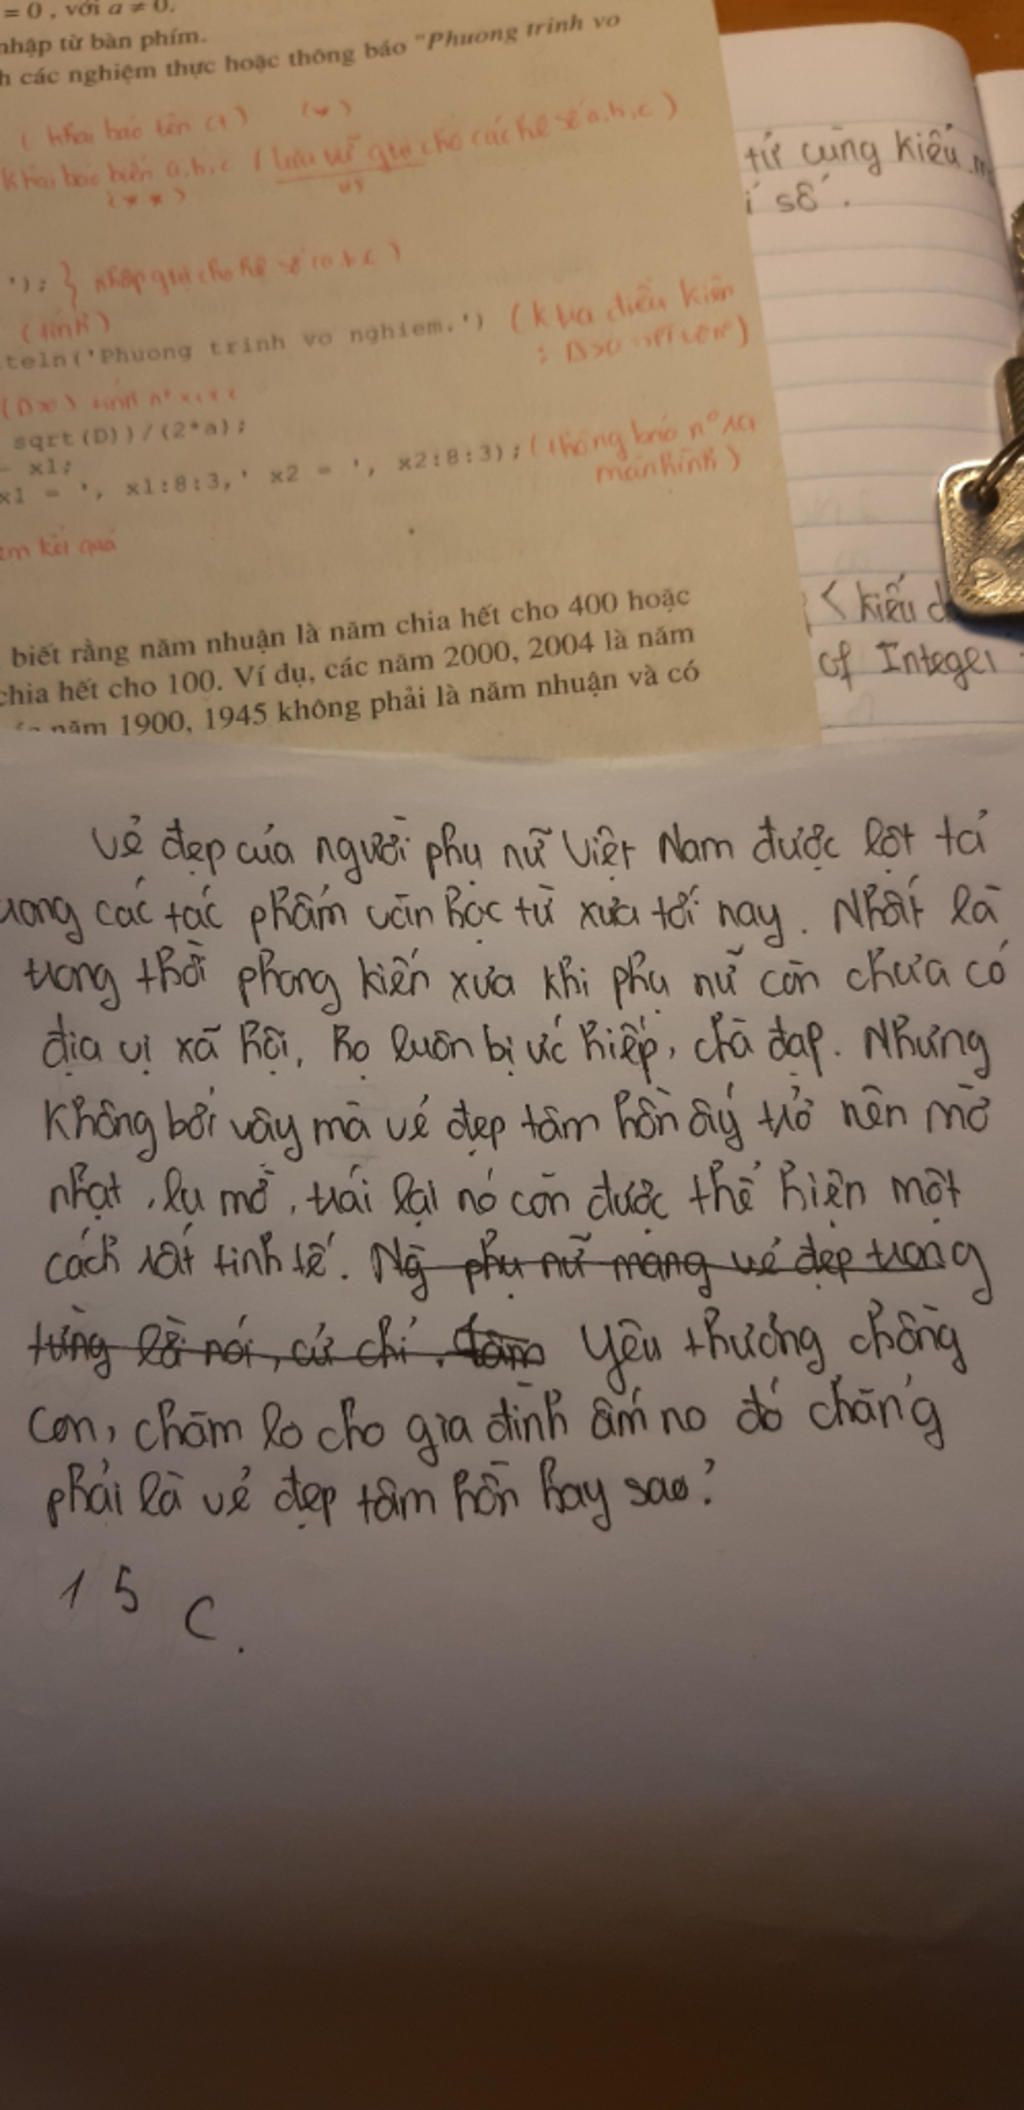 = 0, với a ≠ 0.
nhập từ bàn phím.
h các nghiệm thực hoặc thông báo "Phuong trinh vo
( khai báo tên (*)
khai báo biến a,b,c ( lưu trữ giá cho các hệ số a,b,c )
(**)
'); } nhập giá cho hệ số (a,b,c)
(tính)
teln('Phuong trinh vo nghiem.') (ktra điều kiện
sqrt(D))/(2*a);
- x1;
x1 = ', x1:8:3,' x2 = ', x2:8:3); (thông báo n° ra
màn hình)
em kết quả
biết rằng năm nhuận là năm chia hết cho 400 hoặc
chia hết cho 100. Ví dụ, các năm 2000, 2004 là năm
năm 1900, 1945 không phải là năm nhuận và có
tử cùng kiểu
i số.
< kiểu d
of Integer
Vẻ đẹp của người phụ nữ Việt Nam được lột tả
trong các tác phẩm văn học từ xưa tới nay. Nhất là
trong thời phong kiến xưa khi phụ nữ còn chưa có
địa vị xã hội, họ luôn bị ức hiếp, chà đạp. Nhưng
không bởi vậy mà vẻ đẹp tâm hồn ấy trở nên mờ
nhạt, lu mờ, trái lại nó còn được thể hiện một
cách rất tinh tế. Ng phụ nữ mang vẻ đẹp trong
từng lời nói, cử chỉ. tâm Yêu thương chồng
con, chăm lo cho gia đình ấm no đó chẳng
phải là vẻ đẹp tâm hồn hay sao?
15 C.